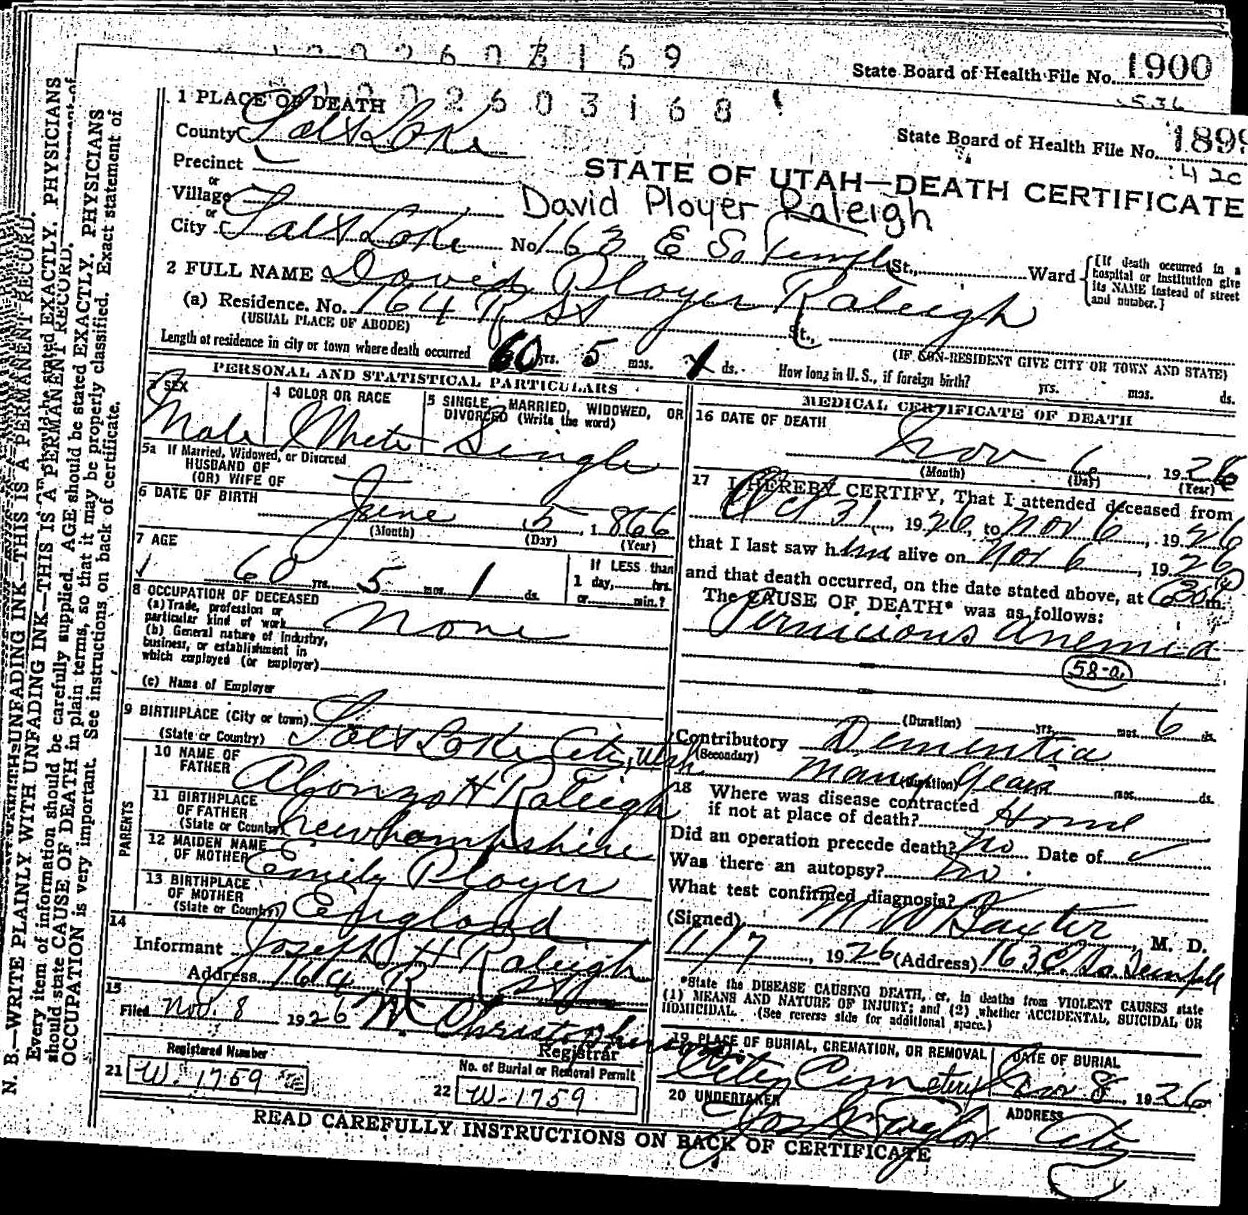 1002603169
State Board of Health File No. 1900
1002603168
State Board of Health File No. 1899
1 PLACE OF DEATH
County Salt Lake
Precinct
or
Village
or
City Salt Lake No. 163 E So Temple St., Ward
[If death occurred in a hospital or institution give its NAME instead of street and number.]
STATE OF UTAH—DEATH CERTIFICATE
David Ployer Raleigh
2 FULL NAME David Ployer Raleigh
(a) Residence. No. 164 R St St.,
(USUAL PLACE OF ABODE)
(IF NON-RESIDENT GIVE CITY OR TOWN AND STATE)
Length of residence in city or town where death occurred 60 yrs. 5 mos. 1 ds. How long in U. S., if foreign birth? yrs. mos. ds.
PERSONAL AND STATISTICAL PARTICULARS
3 SEX
Male
4 COLOR OR RACE
White
5 SINGLE, MARRIED, WIDOWED, OR DIVORCED (Write the word)
Single
5a If Married, Widowed, or Divorced
HUSBAND OF
(OR) WIFE OF
6 DATE OF BIRTH
June 5, 1866
(Month) (Day) (Year)
7 AGE
60 yrs. 5 mos. 1 ds.
If LESS than
1 day, hrs.
or min.?
8 OCCUPATION OF DECEASED
(a) Trade, profession or
particular kind of work None
(b) General nature of Industry,
business, or establishment in
which employed (or employer)
(c) Name of Employer
9 BIRTHPLACE (City or town)
(State or Country) Salt Lake City, Utah
PARENTS
10 NAME OF
FATHER Alonzo H Raleigh
11 BIRTHPLACE
OF FATHER
(State or Country) New hampshire
12 MAIDEN NAME
OF MOTHER Emily Ployer
13 BIRTHPLACE
OF MOTHER
(State or Country) England
14
Informant Joseph H Raleigh
Address 164 R St
15
Filed Nov. 8 1926
Registrar
Registered Number
21 W-1759
No. of Burial or Removal Permit
22 W-1759
MEDICAL CERTIFICATE OF DEATH
16 DATE OF DEATH
Nov 6, 1926
(Month) (Day) (Year)
17 I HEREBY CERTIFY, That I attended deceased from
Oct 31, 1926, to Nov 6, 1926
that I last saw him alive on Nov 6, 1926
and that death occurred, on the date stated above, at m.
The CAUSE OF DEATH* was as follows:
Pernicious Anemia
58-a
(Duration) yrs. mos. 6 ds.
Contributory Dementia
(Secondary)
many years (Duration) mos. ds.
18 Where was disease contracted
if not at place of death? Home
Did an operation precede death? No Date of
Was there an autopsy? No
What test confirmed diagnosis?
(Signed) M W Baxter, M. D.
11/7, 1926 (Address) 163 E. So. Temple
*State the DISEASE CAUSING DEATH, or, in deaths from VIOLENT CAUSES state
(1) MEANS AND NATURE OF INJURY; and (2) whether ACCIDENTAL, SUICIDAL OR
HOMICIDAL. (See reverse side for additional space.)
19 PLACE OF BURIAL, CREMATION, OR REMOVAL
City Cemetery
DATE OF BURIAL
Nov 8, 1926
20 UNDERTAKER
Jos Wm Taylor
ADDRESS
City
READ CAREFULLY INSTRUCTIONS ON BACK OF CERTIFICATE
N. B.—WRITE PLAINLY WITH UNFADING INK—THIS IS A PERMANENT RECORD.
Every item of information should be carefully supplied. AGE should be stated EXACTLY. PHYSICIANS
should state CAUSE OF DEATH in plain terms, so that it may be properly classified. Exact statement of
OCCUPATION is very important. See instructions on back of certificate.